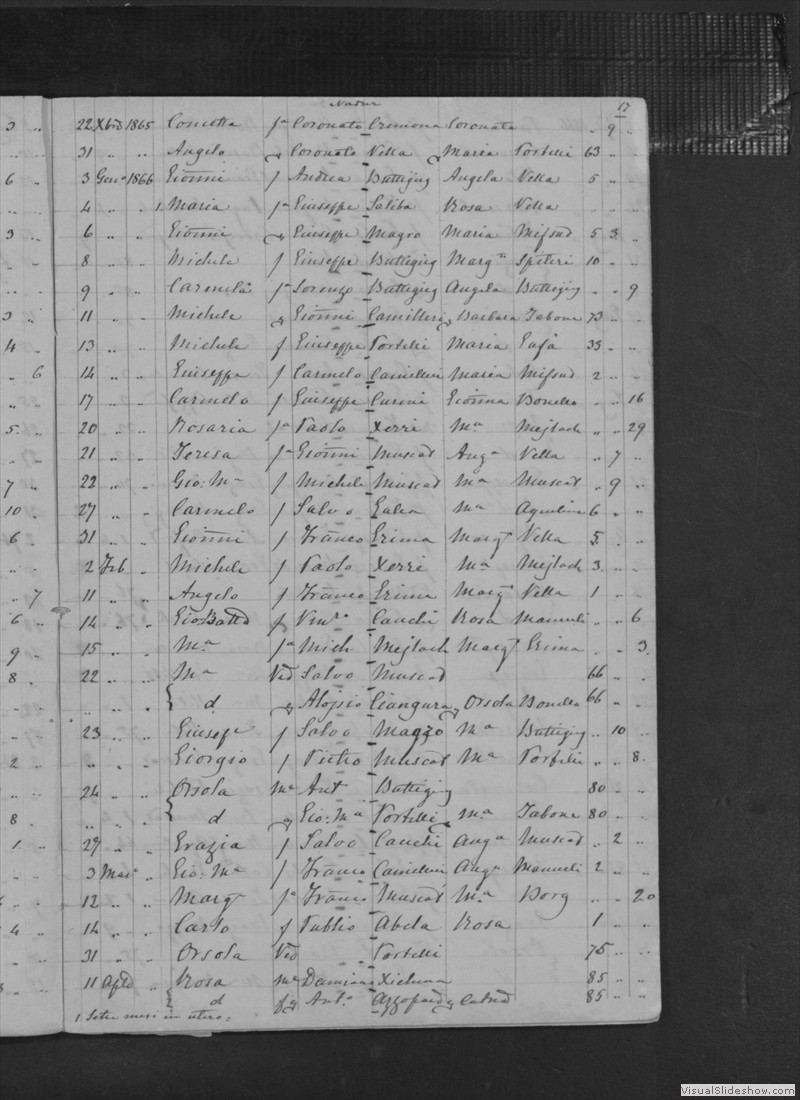 Nadur
17
22 Xbre 1865 Concetta fa Coronato Cremona Coronata .. 9 ..
31 .. .. Angelo q Coronato Vella q Maria Portelli 63 .. ..
6 .. 3 Genº 1866 Giōnni f Andrea Buttigieg Angela Vella 5 .. ..
4 .. .. 1. Maria fa Giuseppe Saliba Rosa Vella .. .. ..
3 .. 6 .. .. Giōnni q Giuseppe Magro Maria Mifsud 5 3 ..
8 .. .. Michele f Giuseppe Buttigieg Margta Spiteri 10 .. ..
9 .. .. Carmela fa Lorenzo Buttigieg Angela Buttigieg .. .. 9
3 .. 11 .. .. Michele q Giōnni Camilleri q Barbara Tabone 73 .. ..
4 .. 13 .. .. Michele f Giuseppe Portelli Maria 33 .. ..
.. 6 14 .. .. Giuseppe f Carmelo Camilleri Maria Mifsud 2 .. ..
17 .. .. Carmelo f Giuseppe Curmi Gionna Bonello .. .. 16
5 .. 20 .. .. Rosaria fa Paolo Xerri Ma Mejlach .. .. 29
21 .. .. Teresa fa Giōnni Muscat Anga Vella .. 7 ..
7 .. 22 .. .. Gio: Ma f Michele Muscat Ma Muscat .. 9 ..
10 .. 27 .. .. Carmelo f Salvo Galea Ma Aquilina 6 .. ..
6 .. 31 .. .. Giōnni f Franco Grima Margta Vella 5 .. ..
2 Feb .. Michele f Paolo Xerri Ma Mejlach 3 .. ..
.. 7 11 .. .. Angelo f Franco Grima Margta Vella 1 .. ..
6 .. 14 .. .. Gio Batta f Vinc° Cauchi Rosa Mamuli .. .. 6
9 .. 15 .. .. Ma fa Mich Mejlach Margta Grima .. .. 3
8 .. 22 .. .. Ma Ved Salvo Muscat 66 .. ..
{ d q Aloisio Ciangura q Orsola Bonello 66 .. ..
23 .. .. Giusepe f Salvo Magro Ma Buttigieg .. 10 ..
2 .. .. .. Giorgio f Pietro Muscat Ma Portelli .. .. 8
24 .. .. Orsola Me Ant Buttigieg 80 .. ..
8 .. { d q Gio: Ma Portelli q Ma Tabone 80 .. ..
1 .. 27 .. .. Grazia f Salvo Cauchi Anga Muscat .. 2 ..
3 Maro .. Gio: Ma f Franco Camilleri Anga Mamuli 2 .. ..
12 .. .. Margta fa Franco Muscat Ma Borg .. .. 20
4 .. 14 .. .. Carlo f Publio Abela Rosa 1 .. ..
31 .. .. Orsola Ved Portelli 75 .. ..
11 .. Rosa Me Damiano Xicluna 85 .. ..
{ d fq Anto Azzopardi q 85 .. ..
1. Sette mesi in utero:
VisualSlideshow.com